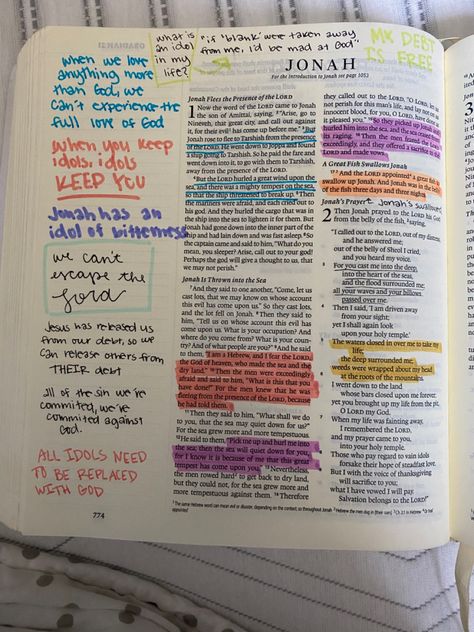 OBADIAH 21
what is
an idol
in my
life?
"if 'blank' were taken away
from me, I'd be mad at God"
MY DEBT
IS FREE
when we love
anything more
than God, we
can't experience the
full love of God
When you keep
idols, idols
KEEP YOU
Jonah has an
idol of bitterness
we can't
escape the
Lord
Jesus has released us
from our debt, so we
can release others from
THEIR debt
all of the sin we've
commited, we've
commited against
God.
ALL IDOLS NEED
TO BE REPLACED
WITH GOD
774
JONAH
For the introduction to Jonah see page 1053
Jonah Flees the Presence of the LORD
1 Now the word of the LORD came to Jonah
the son of Amittai, saying, "Arise, go to
Nineveh, that great city, and call out against
it, for their evil has come up before me." But
Jonah rose to flee to Tarshish from the presence
of the LORD. He went down to Joppa and found
a ship going to Tarshish. So he paid the fare and
went down into it, to go with them to Tarshish,
away from the presence of the LORD.
But the LORD hurled a great wind upon the
sea, and there was a mighty tempest on the sea,
so that the ship threatened to break up. Then
the mariners were afraid, and each cried out to
his god. And they hurled the cargo that was in
the ship into the sea to lighten it for them. But
Jonah had gone down into the inner part of the
ship and had lain down and was fast asleep. So
the captain came and said to him, "What do you
mean, you sleeper? Arise, call out to your god!
Perhaps the god will give a thought to us, that
we may not perish."
Jonah Is Thrown into the Sea
And they said to one another, "Come, let us
cast lots, that we may know on whose account
this evil has come upon us." So they cast lots,
and the lot fell on Jonah. Then they said to
him, "Tell us on whose account this evil has
come upon us. What is your occupation? And
where do you come from? What is your coun-
try? And of what people are you?" And he said
to them, "I am a Hebrew, and I fear the LORD,
the God of heaven, who made the sea and the
dry land." Then the men were exceedingly
afraid and said to him, "What is this that you
have done!" For the men knew that he was
fleeing from the presence of the LORD, because
he had told them.
Then they said to him, "What shall we do
to you, that the sea may quiet down for us?"
For the sea grew more and more tempestuous.
He said to them, "Pick me up and hurl me into
the sea; then the sea will quiet down for you,
for I know it is because of me that this great
tempest has come upon you." Nevertheless,
the men rowed hard to get back to dry land,
but they could not, for the sea grew more and
more tempestuous against them. 14 Therefore
they called out to the LORD, "O LORD, let us
not perish for this man's life, and lay not on us
innocent blood, for you, O LORD, have done as
it pleased you." So they picked up Jonah and
hurled him into the sea, and the sea ceased from
its raging. Then the men feared the LORD
exceedingly, and they offered a sacrifice to the
LORD and made vows.
A Great Fish Swallows Jonah
17 And the LORD appointed a great fish to
swallow up Jonah. And Jonah was in the belly
of the fish three days and three nights.
Jonah's Prayer
2 Then Jonah prayed to the LORD his God
from the belly of the fish, saying,
"I called out to the LORD, out of my distress,
and he answered me;
out of the belly of Sheol I cried,
and you heard my voice.
For you cast me into the deep,
into the heart of the seas,
and the flood surrounded me;
all your waves and your billows
passed over me.
Then I said, 'I am driven away
from your sight;
yet I shall again look
upon your holy temple.'
The waters closed in over me to take my
life;
the deep surrounded me;
weeds were wrapped about my head
at the roots of the mountains.
I went down to the land
whose bars closed upon me forever;
yet you brought up my life from the pit,
O LORD my God.
When my life was fainting away,
I remembered the LORD,
and my prayer came to you,
into your holy temple.
Those who pay regard to vain idols
forsake their hope of steadfast love.
But I with the voice of thanksgiving
will sacrifice to you;
what I have vowed I will pay.
Salvation belongs to the LORD!"